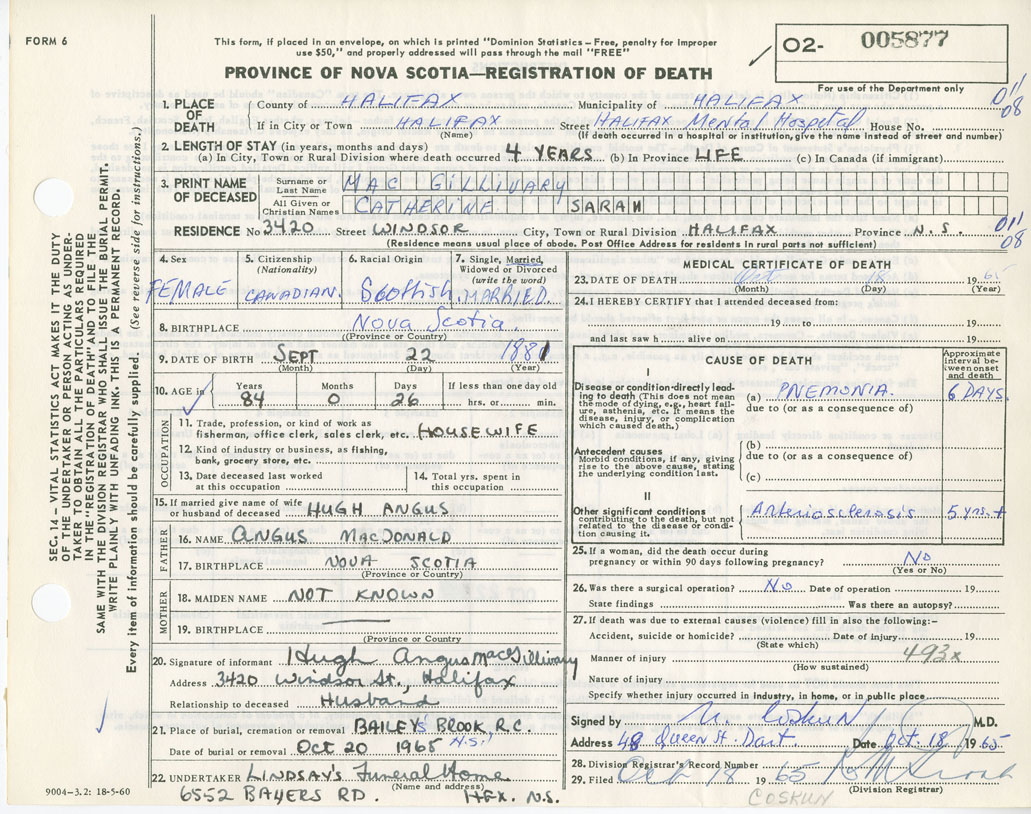 FORM 6
This form, if placed in an envelope, on which is printed "Dominion Statistics – Free, penalty for improper
use $50," and properly addressed will pass through the mail "FREE"
02- 005877
For use of the Department only
PROVINCE OF NOVA SCOTIA—REGISTRATION OF DEATH
011
08
1. PLACE OF DEATH
County of HALIFAX Municipality of HALIFAX
If in City or Town HALIFAX Street HALIFAX Mental Hospital House No.
(Name) (If death occurred in a hospital or institution, give the name instead of street and number)
2. LENGTH OF STAY (in years, months and days)
(a) In City, Town or Rural Division where death occurred 4 YEARS (b) In Province LIFE (c) In Canada (if immigrant)
3. PRINT NAME OF DECEASED
Surname or Last Name MAC GILLIVARY
All Given or Christian Names CATHERINE SARAH
RESIDENCE No 3420 Street WINDSOR City, Town or Rural Division HALIFAX Province N.S.
011
08
(Residence means usual place of abode. Post Office Address for residents in rural parts not sufficient)
4. Sex
FEMALE
5. Citizenship
(Nationality)
CANADIAN.
6. Racial Origin
Scottish
7. Single, Married,
Widowed or Divorced
(write the word)
MARRIED.
8. BIRTHPLACE Nova Scotia.
(Province or Country)
9. DATE OF BIRTH SEPT 22 1881
(Month) (Day) (Year)
10. AGE in
Years Months Days If less than one day old
84 0 26 hrs. or min.
OCCUPATION
11. Trade, profession, or kind of work as
fisherman, office clerk, sales clerk, etc. HOUSEWIFE
12. Kind of industry or business, as fishing,
bank, grocery store, etc.
13. Date deceased last worked
at this occupation
14. Total yrs. spent in
this occupation
15. If married give name of wife
or husband of deceased HUGH ANGUS
FATHER
16. NAME ANGUS MacDONALD
17. BIRTHPLACE NOVA SCOTIA
(Province or Country)
MOTHER
18. MAIDEN NAME NOT KNOWN
19. BIRTHPLACE
(Province or Country)
20. Signature of informant Hugh Angus MacGillivary
Address 3420 Windsor St., Halifax
Relationship to deceased Husband
21. Place of burial, cremation or removal BAILEY'S BROOK, R.C.
N.S.,
Date of burial or removal Oct 20 1965
22. UNDERTAKER LINDSAY'S Funeral Home
(Name and address)
6552 BAYERS RD. HFX. N.S.
9004-3.2: 18-5-60
MEDICAL CERTIFICATE OF DEATH
23. DATE OF DEATH Oct 18 1965
(Month) (Day) (Year)
24. I HEREBY CERTIFY that I attended deceased from:
19 to 19
and last saw h alive on 19
CAUSE OF DEATH
Approximate
interval be-
tween onset
and death
I
Disease or condition directly lead-
ing to death (This does not mean
the mode of dying, e.g., heart fail-
ure, asthenia, etc. It means the
disease, injury, or complication
which caused death.)
(a) PNEMONIA. 6 DAYS.
due to (or as a consequence of)
Antecedent causes
Morbid conditions, if any, giving
rise to the above cause, stating
the underlying condition last.
(b)
due to (or as a consequence of)
(c)
II
Other significant conditions
contributing to the death, but not
related to the disease or condi-
tion causing it.
Arteriosclerosis 5 yrs. +
25. If a woman, did the death occur during
pregnancy or within 90 days following pregnancy? No
(Yes or No)
26. Was there a surgical operation? No Date of operation 19
State findings Was there an autopsy?
27. If death was due to external causes (violence) fill in also the following:–
Accident, suicide or homicide? Date of injury 19
(State which)
493x
Manner of injury
(How sustained)
Nature of injury
Specify whether injury occurred in industry, in home, or in public place
Signed by N. Coskun M.D.
Address 48 Queen St. Dart. Date Oct. 18 1965
28. Division Registrar's Record Number
29. Filed Oct 18 1965
(Division Registrar)
COSKUN
SEC. 14 – VITAL STATISTICS ACT MAKES IT THE DUTY
OF THE UNDERTAKER OR PERSON ACTING AS UNDER-
TAKER TO OBTAIN ALL THE PARTICULARS REQUIRED
IN THE "REGISTRATION OF DEATH" AND TO FILE THE
SAME WITH THE DIVISION REGISTRAR WHO SHALL ISSUE THE BURIAL PERMIT.
WRITE PLAINLY WITH UNFADING INK. THIS IS A PERMANENT RECORD.
Every item of information should be carefully supplied. (See reverse side for instructions.)